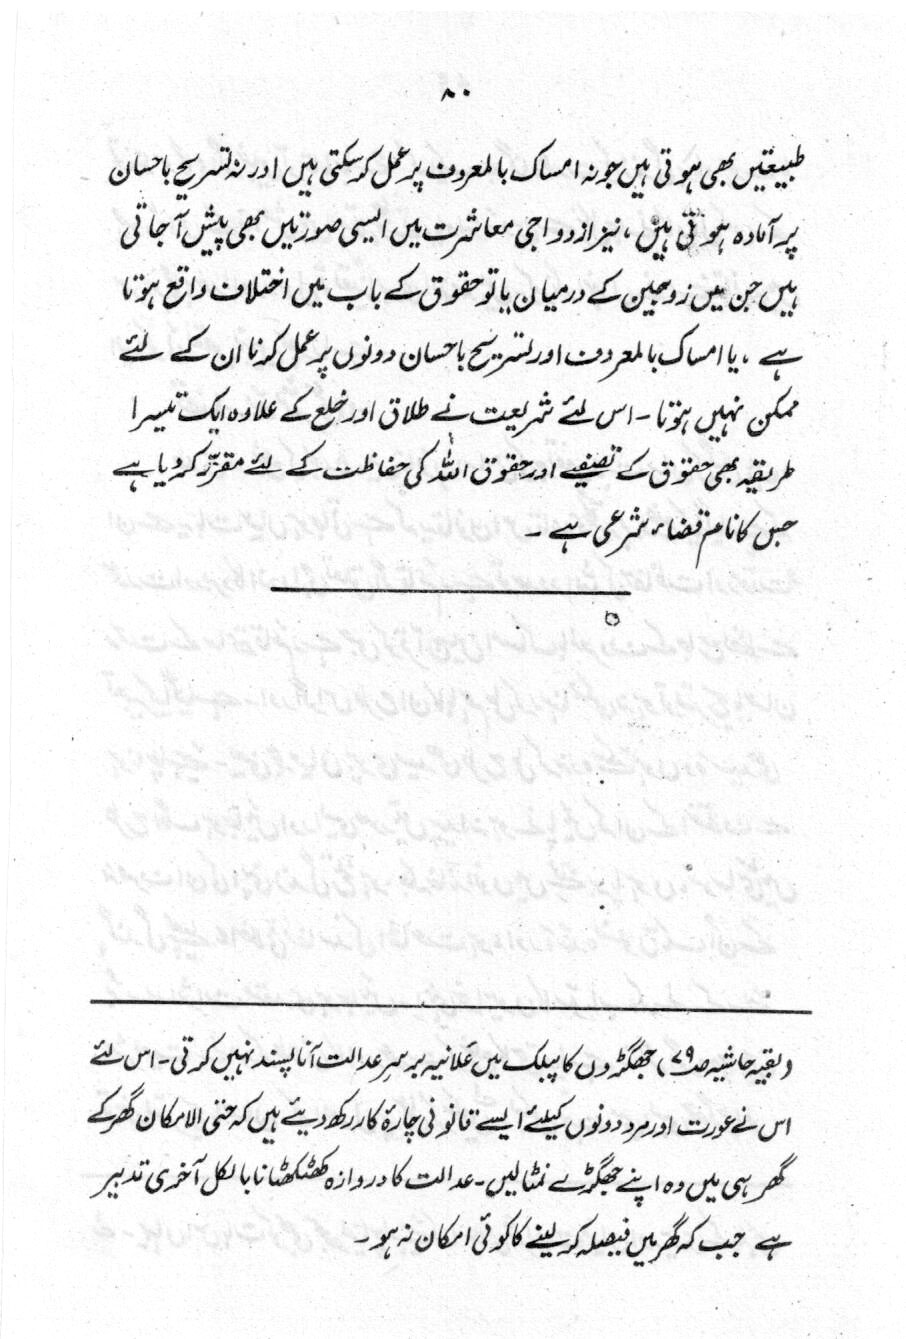 ۸۰
طبیعتیں بھی ہوتی ہیں جو نہ امساک بالمعروف پر عمل کرسکتی ہیں اور نہ تسریح باحسان
پر آمادہ ہوتی ہیں، نیز ازدواجی معاشرت میں ایسی صورتیں بھی پیش آجاتی
ہیں جن میں زوجین کے درمیان یا تو حقوق کے باب میں اختلاف واقع ہوتا
ہے، یا امساک بالمعروف اور تسریح باحسان دونوں پر عمل کرنا ان کے لئے
ممکن نہیں ہوتا۔ اس لئے شریعت نے طلاق اور خلع کے علاوہ ایک تیسرا
طریقہ بھی حقوق کے تصفیے اور حقوق اللہ کی حفاظت کے لئے مقرّر کردیا ہے
جس کا نام قضاء شرعی ہے۔
(بقیہ حاشیہ صـ۷۹) جھگڑوں کا پبلک میں عَلانیہ برسرِ عدالت آنا پسند نہیں کرتی۔ اس لئے
اس نے عورت اور مرد دونوں کیلئے ایسے قانونی چارۂ کار رکھ دیئے ہیں کہ حتی الامکان گھر کے
گھر ہی میں وہ اپنے جھگڑے نمٹالیں۔ عدالت کا دروازہ کھٹکھٹانا بالکل آخری تدبیر
ہے جب کہ گھر میں فیصلہ کرلینے کا کوئی امکان نہ ہو۔